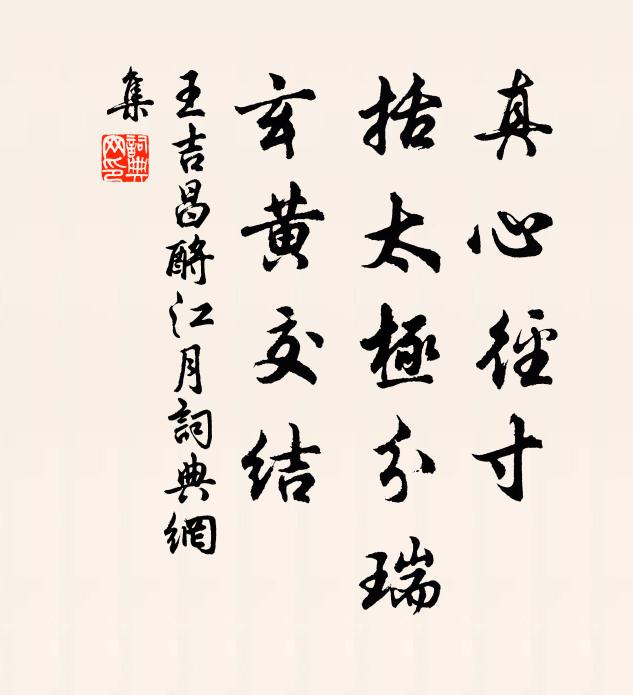 真心徑寸
括太極分瑞
玄黃交結
王吉昌酹江月詞典網
集
詞典
網印